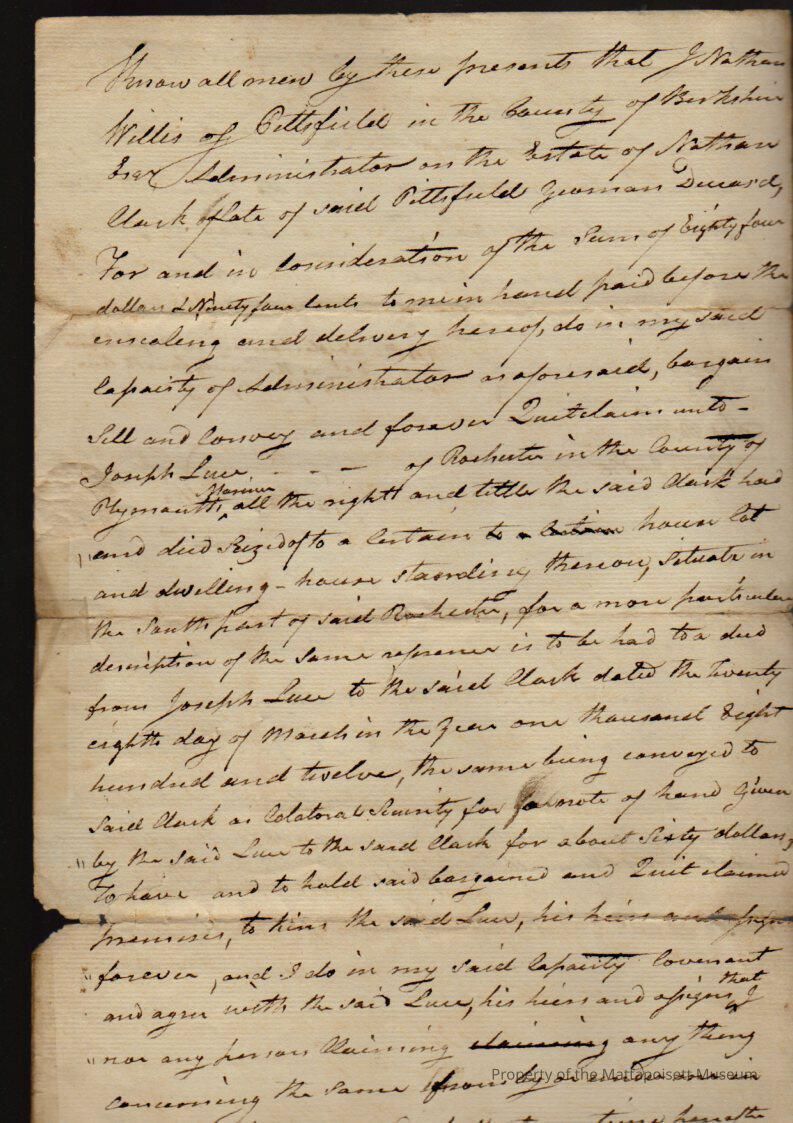 Know all men by these presents that I Nathan
Willis of Pittsfield in the County of Berkshire
Esqr Administrator on the Estate of Nathan
Clark late of said Pittsfield Yeoman Deceasd,
For and in Consideration of the Sum of Eighty four
dollars & Ninety four Cents to me in hand paid before the
ensealing and delivery hereof, do in my said
Capacity of Administrator as aforesaid, bargain
Sell and Convey and forever Quitclaim unto -
Joseph Luce - - - of Rochester in the County of
Plymouth, Mariner all the right and title the said Clark had
and died Seized of to a Certain to a Certain house lot
and dwelling-house standing thereon, situate in
the South part of said Rochester, for a more particular
description of the same reference is to be had to a deed
from Joseph Luce to the said Clark dated the twenty
eighth day of March in the Year one thousand Eight
hundred and twelve, the same being conveyed to
said Clark as Colatoral Security for a note of hand given
by the said Luce to the said Clark for about Sixty dollars,
To have and to hold said bargained and Quit claimed
premises, to him the said Luce, his heirs and assigns
forever, and I do in my said Capacity Covenant
and agree with the said Luce, his heirs and assigns, that I
nor any person Claiming claiming any thing
concerning the same from by or under
hereto
Property of the Mattapoisett Museum